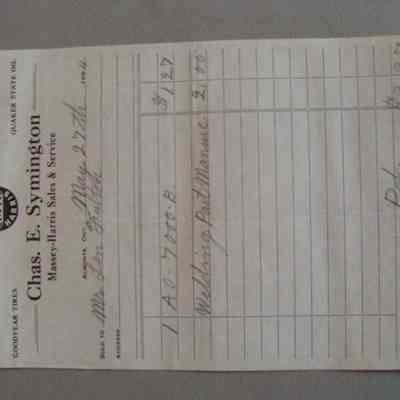 GOODYEAR TIRES QUAKER STATE OIL
Chas. E. Symington
Massey-Harris Sales & Service
May 27th 194
SOLD TO Mr. Len
ADDRESS
1 AO-7000-B. $1.27
Welding Part Manure 2.00
Pd.